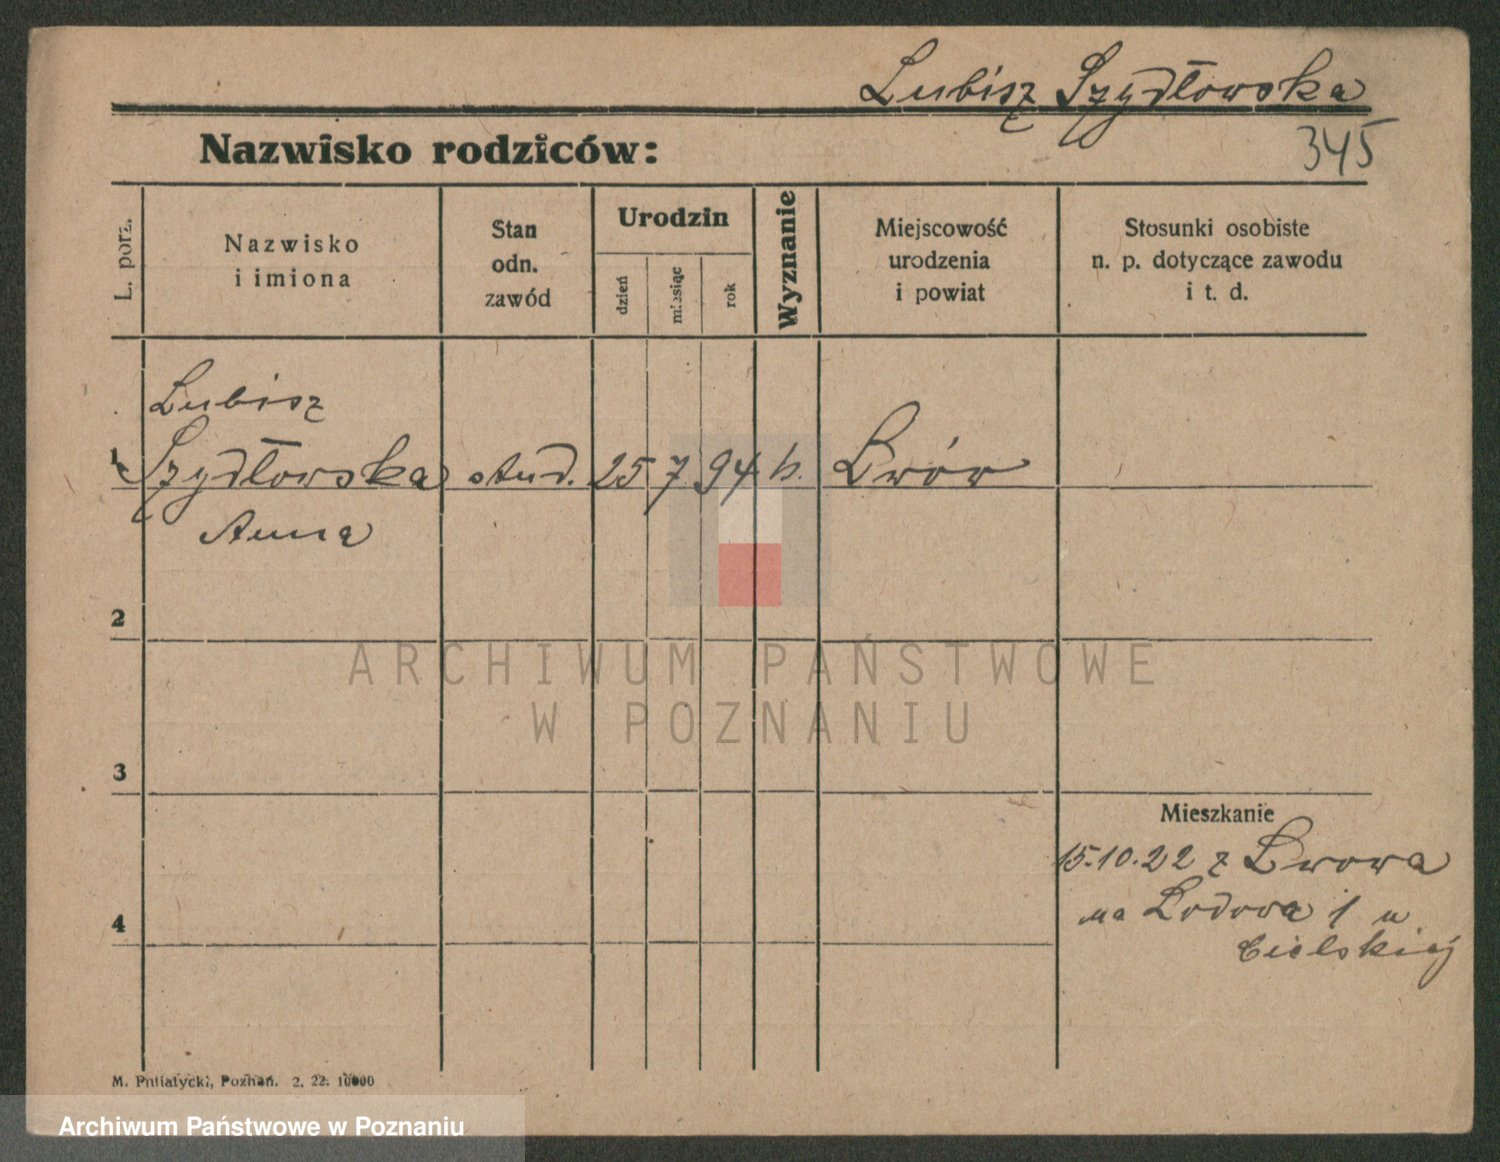 Lubisz Szydłowska
345
Nazwisko rodziców:
L. porz.
Nazwisko
i imiona
Stan
odn.
zawód
Urodzin
dzień
miesiąc
rok
Wyznanie
Miejscowość
urodzenia
i powiat
Stosunki osobiste
n. p. dotyczące zawodu
i t. d.
Lubisz
1 Szydłowska stud. 25 7 94 k. Lwów
Anna
2
ARCHIWUM PAŃSTWOWE
W POZNANIU
3
Mieszkanie
15.10.22 z Lwowa
na 1 u
4
Bielskiej
M. Putiatycki, Poznań. 2. 22. 10000
Archiwum Państwowe w Poznaniu